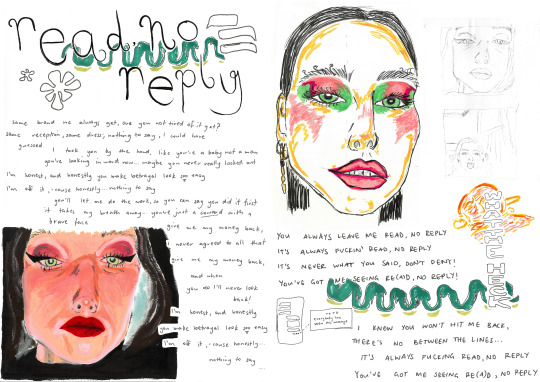 read, no
reply
same brand me always get, are you not tired of it yet?
same reception, same dress, nothing to say, I could have
guessed
I took you by the hand, like you're a baby not a man
you're looking inward now... maybe you never really looked out
I'm honest, and honestly you make betrayal look so easy
I'm off it, 'cause honestly... nothing to say
you'll let me do the work, so you can say you did it first
it takes my breath away. you're just a coward with a
brave face
give me my money back,
I never agreed to all that
give me my money back,
and when
you do I'll never look
back!
I'm honest, and honestly
you make betrayal look so easy
I'm off it, 'cause honestly...
nothing to say
...
YOU ALWAYS LEAVE ME READ, NO REPLY
IT'S ALWAYS FUCKIN' READ, NO REPLY
IT'S NEVER WHAT YOU SAID, DON'T DENY!
YOU'VE GOT ME SEEING RE(A)D, NO REPLY!
I KNOW YOU WON'T HIT ME BACK,
THERE'S NO BETWEEN THE LINES...
IT'S ALWAYS FUCKING READ, NO REPLY
YOU'VE GOT ME SEEING RE(A)D, NO REPLY